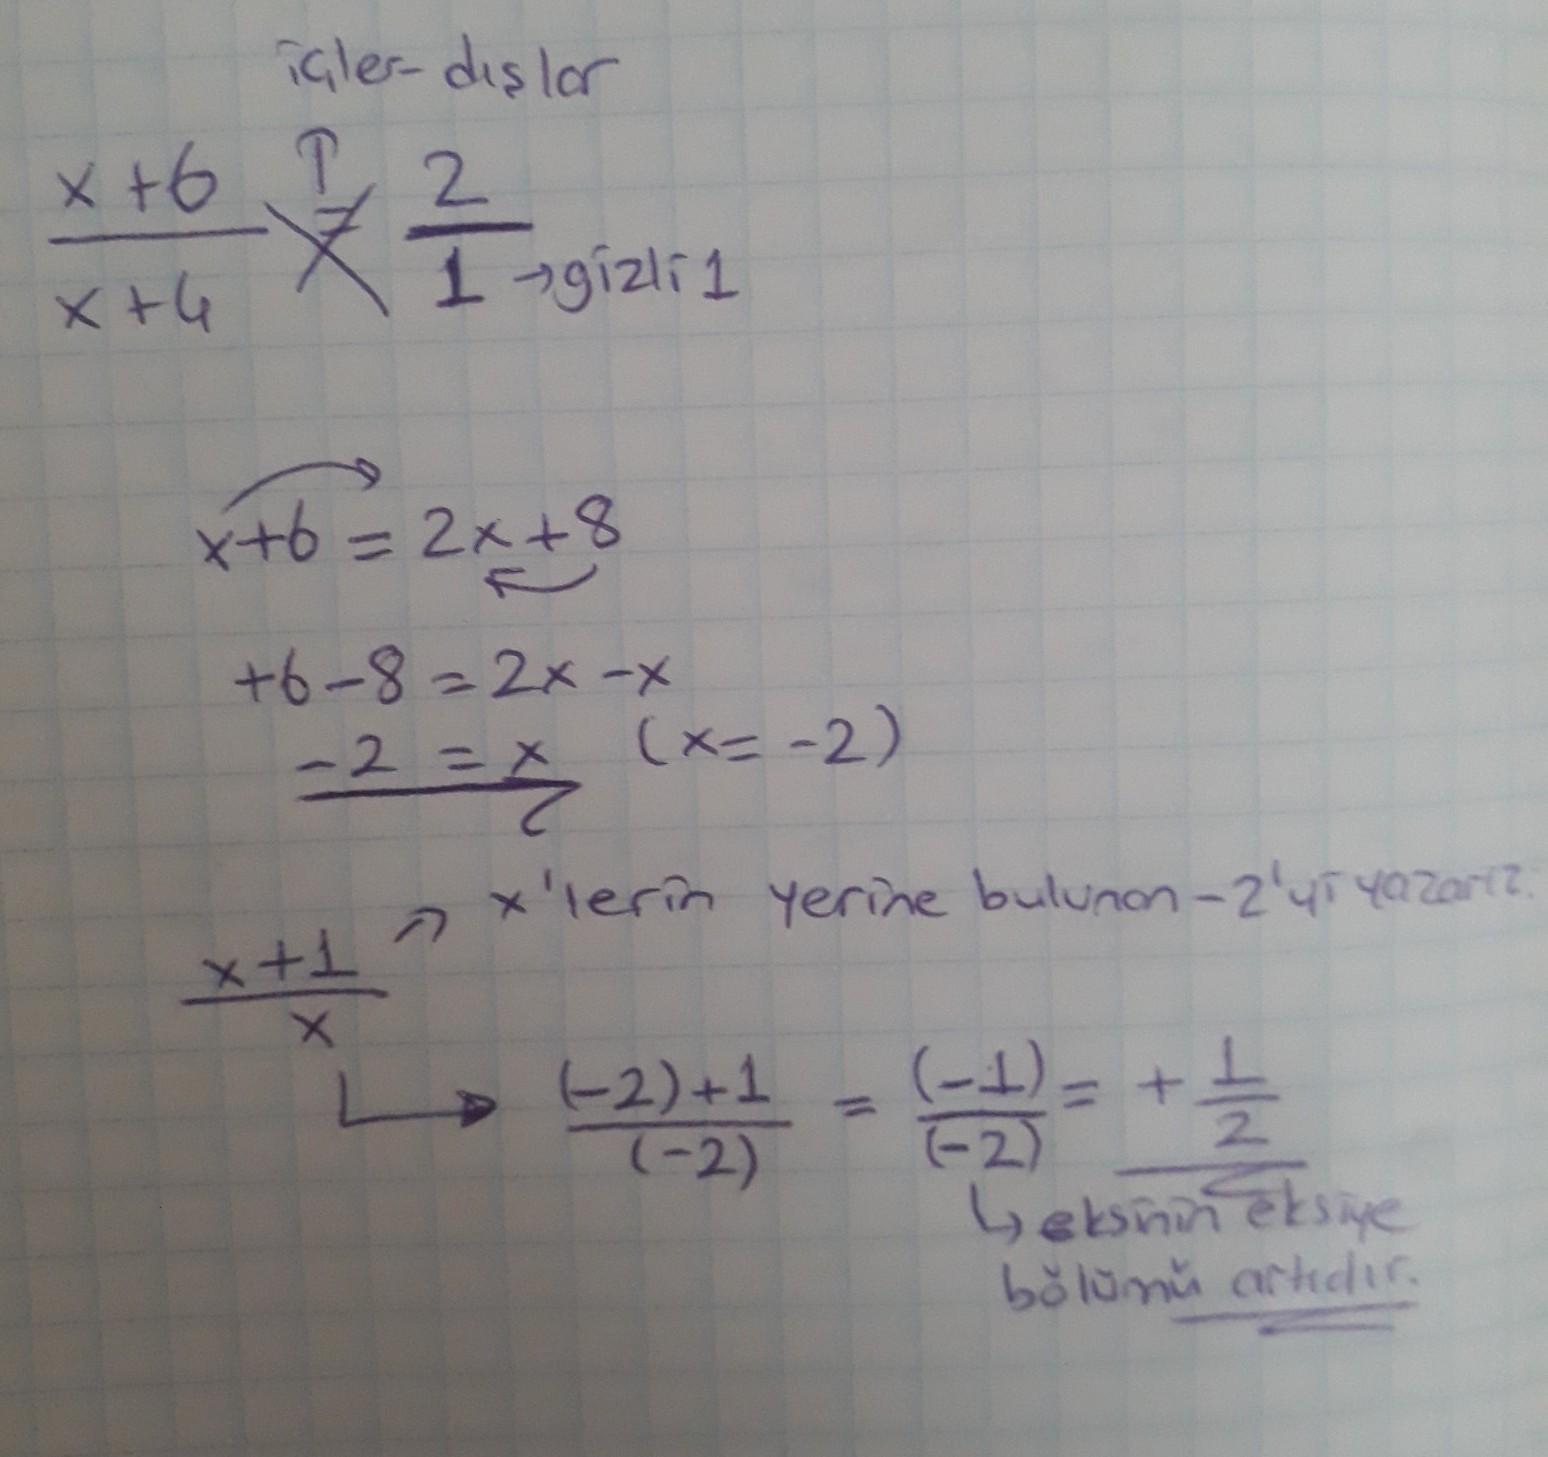 içler-dışlar
x+6 = 2
x+4 1 →gizli 1
x+6 = 2x+8
+6-8 = 2x-x
-2 = x (x= -2)
x'lerin yerine bulunan -2'yi yazarız.
x+1
x
(-2)+1 = (-1) = + 1
(-2) (-2) 2
eksinin eksiye
bölümü artıdır.